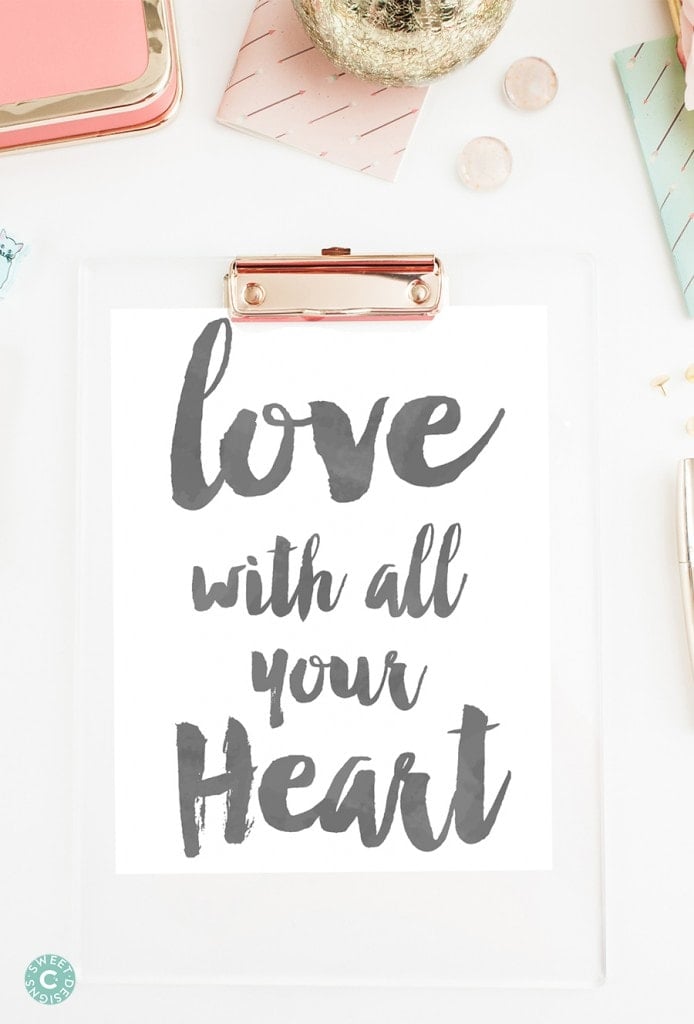 love
with all
your
Heart
SWEET
C
DESIGNS